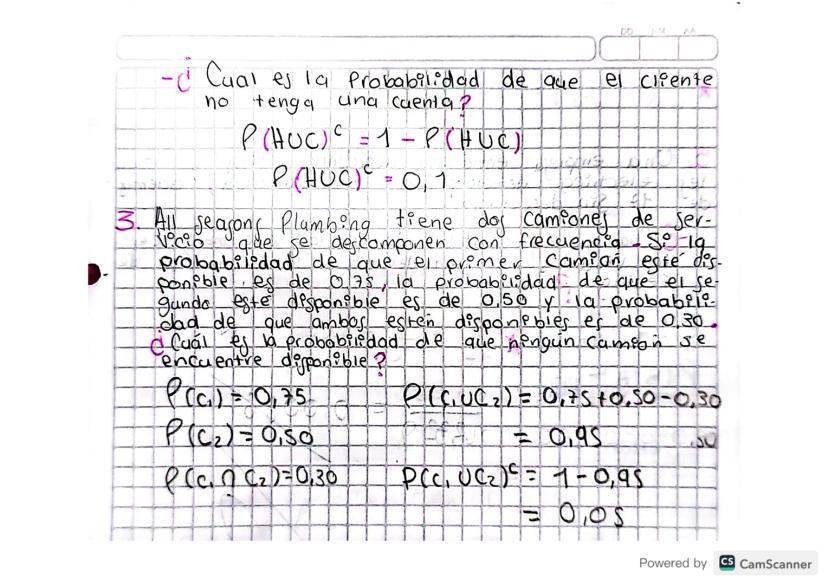 -¿ Cual es la Probabilidad de que el cliente
no tenga una cuenta?
P(HUC)ᶜ = 1 - P(HUC)
P(HUC)ᶜ = 0,1
3. All seasons Plumbing tiene dos camiones de ser-
vicio que se descomponen con frecuencia. Si la
probabilidad de que el primer camión esté dis-
ponible es de 0,75, la probabilidad de que el se-
gundo esté disponible es de 0,50 y la probabili-
dad de que ambos estén disponibles es de 0,30.
¿Cuál es la probabilidad de que nengún camión se
encuentre disponible?
P(C₁) = 0,75 P(C₁UC₂) = 0,75+0,50-0,30
P(C₂) = 0,50 = 0,95
P(C₁∩C₂)=0,30 P(C₁UC₂)ᶜ = 1-0,95
= 0,05
Powered by CS CamScanner